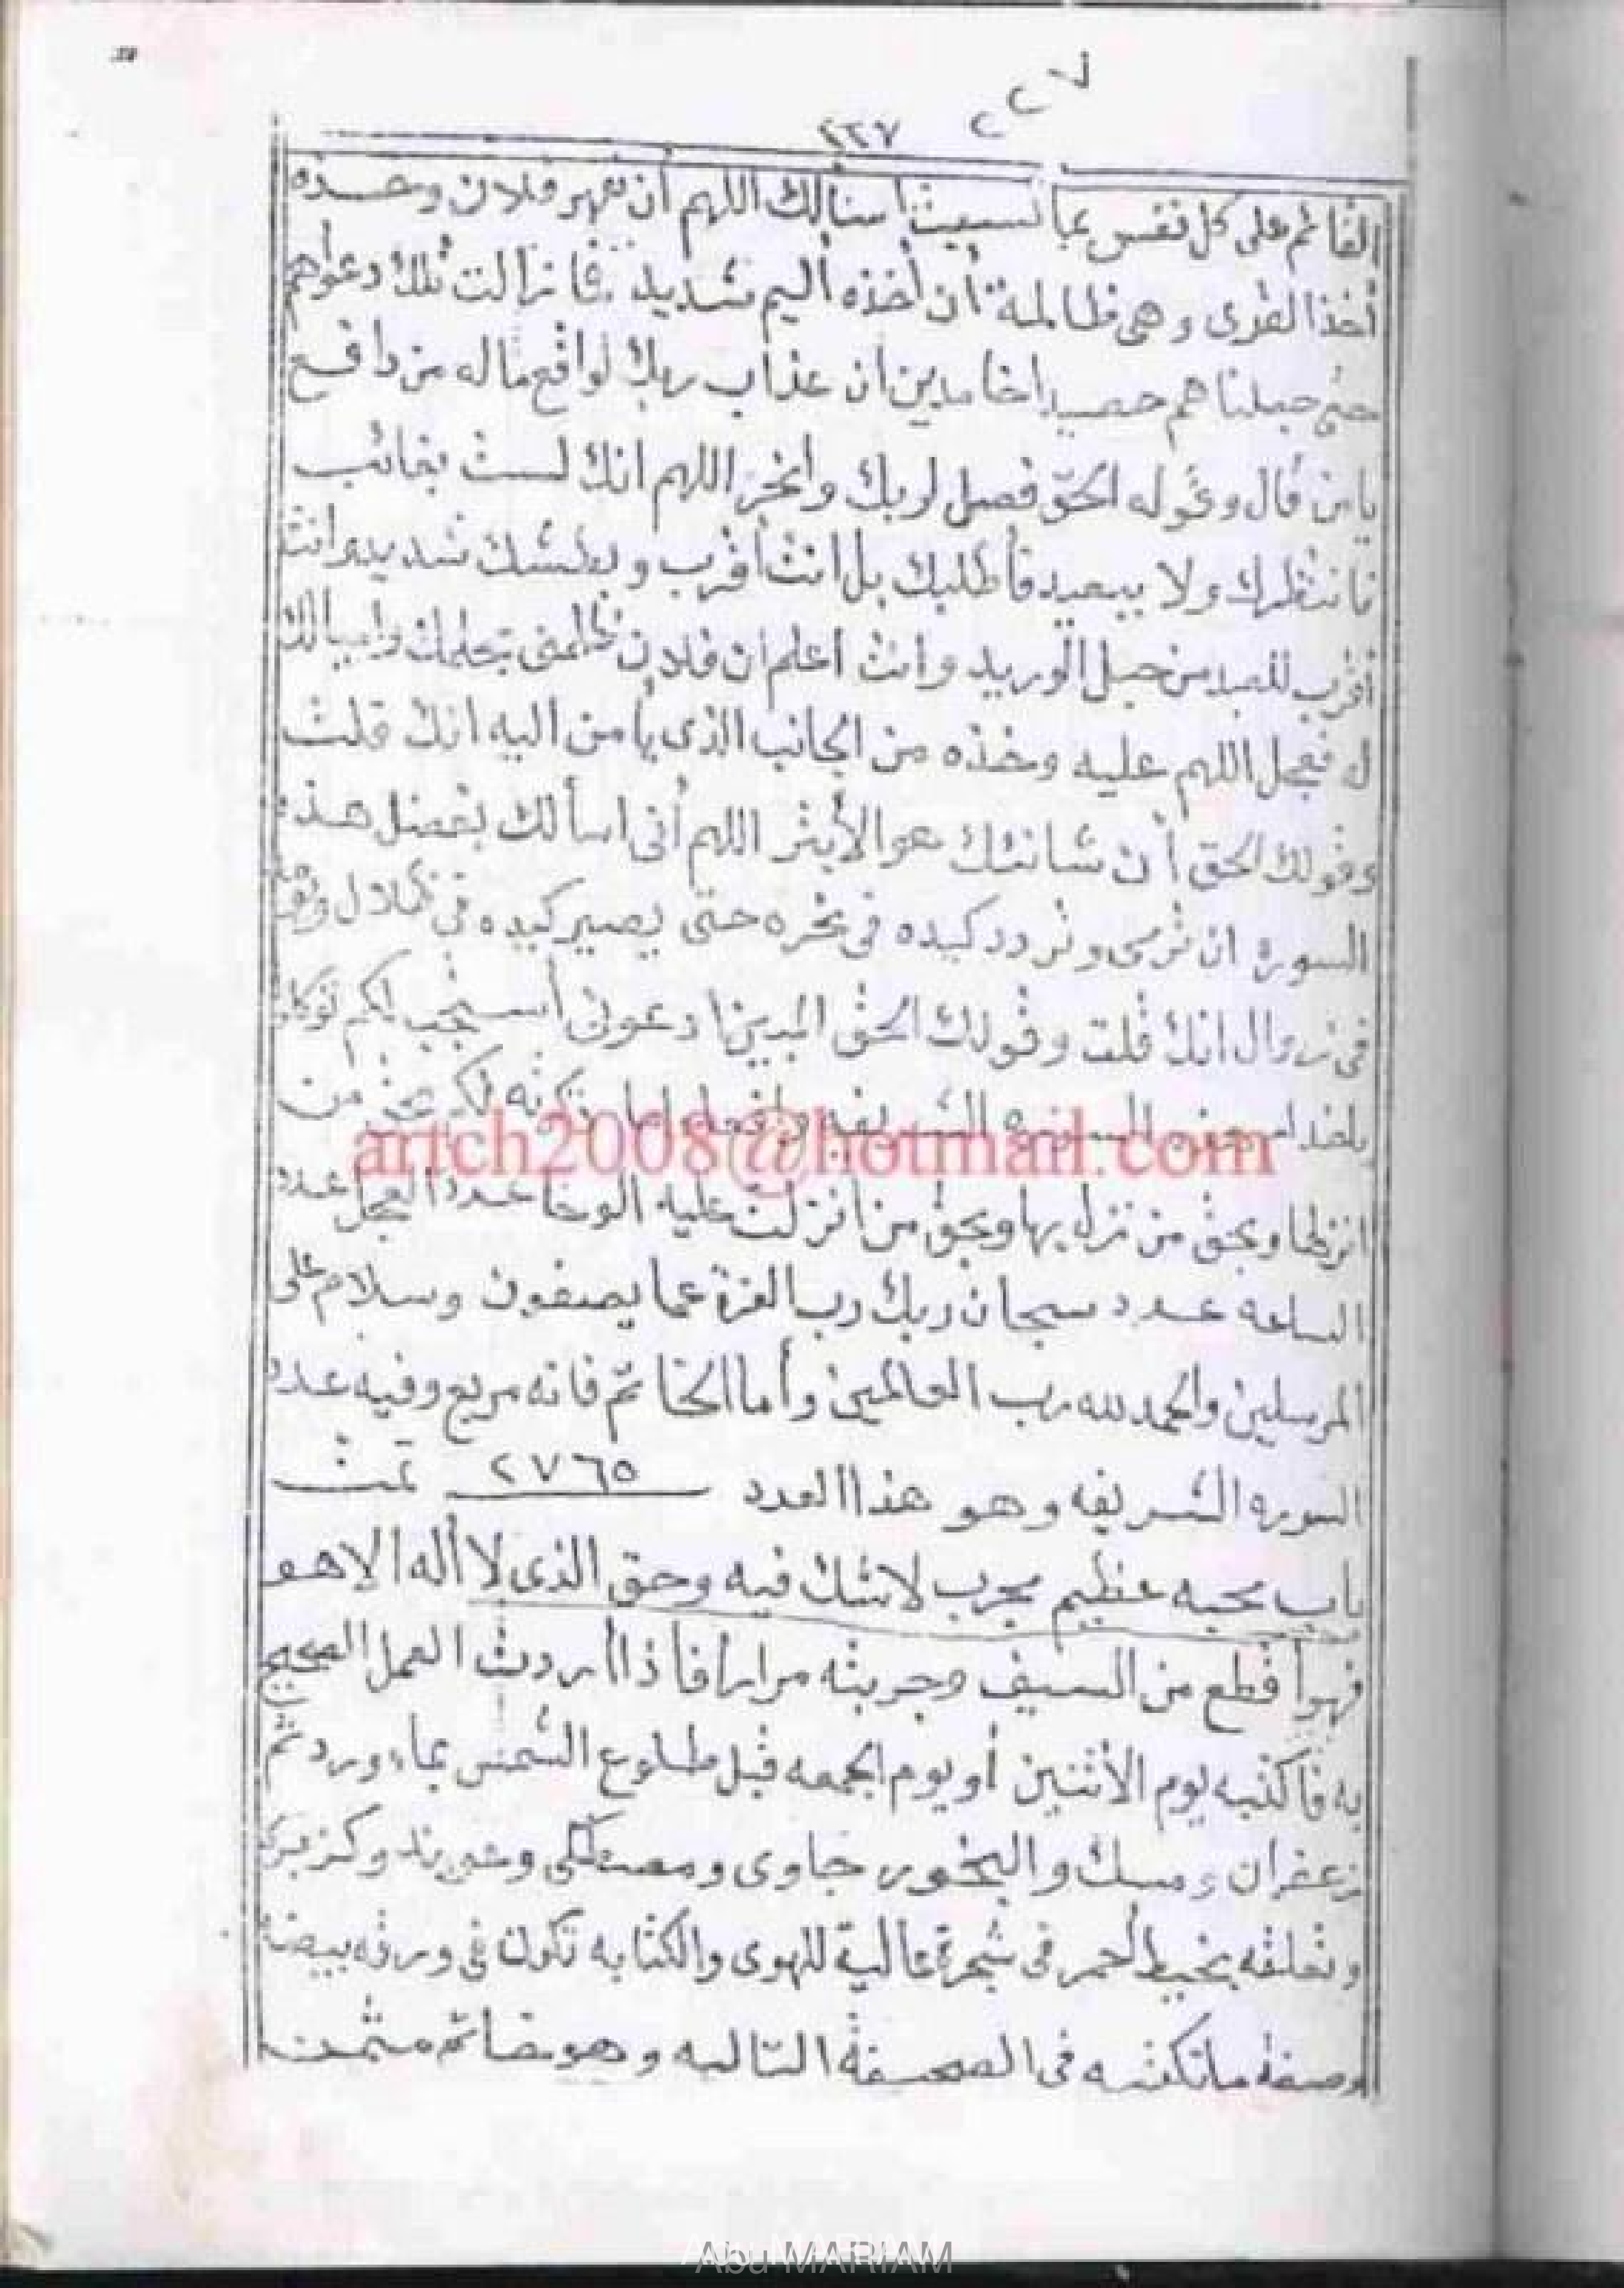 ٢٢٧
٢٢٧
القائم على كل نفس بما كسبت اسالك اللهم أن تقهر فلان وخذه
أخذ القرى وهى ظالمة أن أخذه أليم شديد فما زالت تلك دعواهم
حتى جعلناهم حصيدا خامدين ان عذاب ربك لواقع ماله من دافع
يامن قال وقوله الحق فصل لربك وانحر اللهم انك لست بغائب
فانتظرك ولا ببعيد فأطلبك بل انت أقرب وبطشك شديد وانت
أقرب للعبد من حبل الوريد وانت اعلم ان فلان ظلمنى
فعجل اللهم عليه وخذه من الجانب الذى يأمن اليه انك قلت
وقولك الحق أن شانئك هو الأبتر اللهم أنى اسألك بفضل هذه
السورة ان ترمى وتردد كيده فى نحره حتى يصير كيده فى
فى زوال انك قلت وقولك الحق المبين ادعونى أستجب لكم توكلوا
ياخدام هذه السوره الشريفه وافعلوا ما
انزلها وبحق من نزل بها وبحق من انزلت عليه الوحا عدد العجل عدد
الساعه عدد سبحان ربك رب العزة عما يصفون وسلام على
المرسلين والحمد لله رب العالمين وأما الخاتم فانه مربع وفيه عدد
السوره الشريفه وهو هذا العدد ٢٧٦٥ تمت
باب محبه عظيم مجرب لاشك فيه وحق الذى لا أله الا هو
فهو أقطع من السيف وجربته مرارا فاذا أردت العمل الصحيح
به فأكتبه يوم الأثنين أو يوم الجمعه قبل طلوع الشمس بماء ورد ثم
زعفران ومسك والبخور جاوى ومصتكى وكزبرة
وتعلقه بخيط أحمر فى شجرة عالية للهوى والكتابه تكون فى ورقه بيضة
وصفة ماتكتبه فى الصحيفة التاليه وهو خاتم مثمن
artch2008@hotmail.com
Abu MARIAM